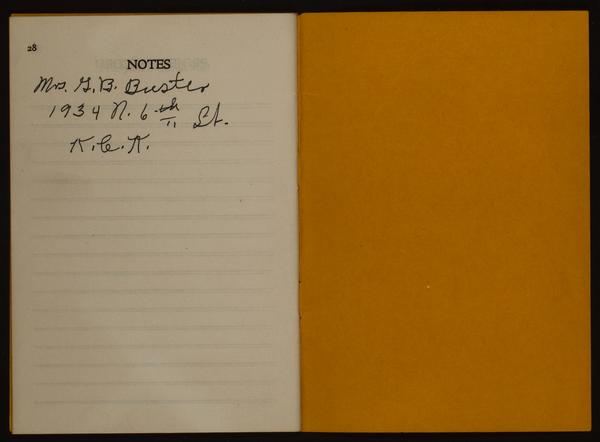 28
NOTES
Mrs. G. B. Buster
1934 N. 6 th St.
K. C. K.